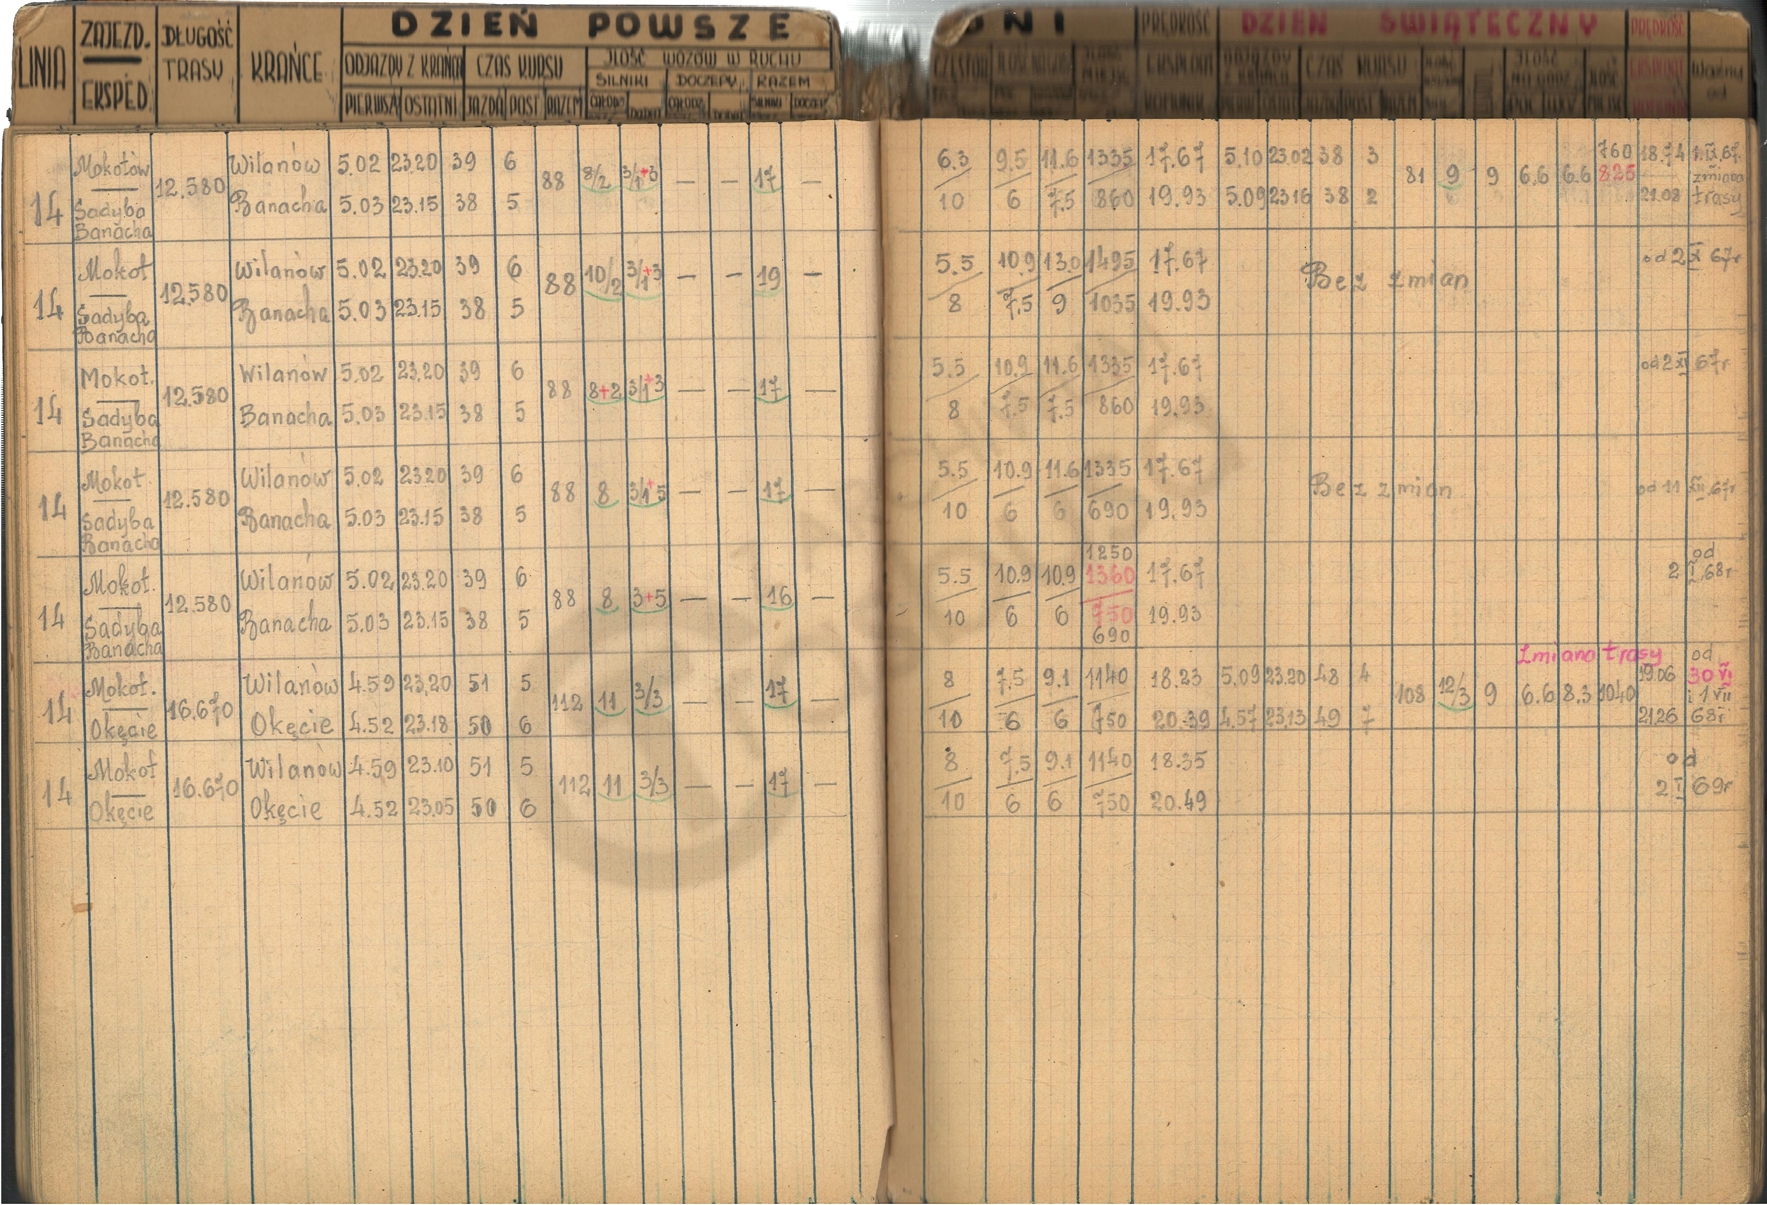 DZIEŃ POWSZE DNI DZIEŃ ŚWIĄTECZNY
LINIA ZAJEZD. EKSPED. DŁUGOŚĆ TRASY KRAŃCE ODJAZDY Z KRAŃCA CZAS KURSU JLOŚĆ WOZÓW W RUCHU PRĘDKOŚĆ EKSPLOAT. KOMUNIK. CZAS KURSU PRĘDKOŚĆ Ważny od
SILNIKI DOCZEPY RAZEM
PIERWSZA OSTATNI JAZDA POST. RAZEM
Mokotów Wilanów 5.02 23.20 39 6 6.3 9.5 11.6 1335 17.67 5.10 23.02 38 3 760 18.74 1.IX.67.
14 12.580 88 8/2 3/1+3 — — 17 — 81 9 9 6.6 6.6 825 zmiana
Sadyba Banacha 5.03 23.15 38 5 10 6 7.5 860 19.93 5.09 23.16 38 2 21.08 trasy
Banacha
Mokot Wilanów 5.02 23.20 39 6 5.5 10.9 13.0 1495 17.67 od 2 X 67r
14 12.580 88 10/2 3/1+3 — — 19 — Bez zmian
Sadyba Banacha 5.03 23.15 38 5 8 7.5 9 1035 19.93
Banacha
Mokot. Wilanów 5.02 23.20 39 6 5.5 10.9 11.6 1335 17.67 od 2 XI 67r
14 12.580 88 8+2 3/1+3 — — 17 —
Sadyba Banacha 5.03 23.15 38 5 8 7.5 7.5 860 19.93
Banacha
Mokot. Wilanów 5.02 23.20 39 6 5.5 10.9 11.6 1335 17.67
14 12.580 88 8 3/1+5 — — 17 — Bez zmian od 11 XII.67r
Sadyba Banacha 5.03 23.15 38 5 10 6 6 690 19.93
Banacha
1250 od
Mokot. Wilanów 5.02 23.20 39 6 5.5 10.9 10.9 1360 17.67 2 I.68r
14 12.580 88 8 3+5 — — 16 —
Sadyba Banacha 5.03 23.15 38 5 10 6 6 750 19.93
Banacha 690
Zmiana trasy od
Mokot. Wilanów 4.59 23,20 51 5 8 7.5 9.1 1140 18.23 5,09 23.20 48 4 19.06 30 VI
14 16.670 112 11 3/3 — — 17 — 108 12/3 9 6.6 8.3 1040 i 1 VII
Okęcie Okęcie 4.52 23.18 50 6 10 6 6 750 20.39 4.57 23,13 49 7 21.26 68r
Mokot Wilanów 4.59 23.10 51 5 8 7.5 9.1 1140 18.35 od
14 16.670 112 11 3/3 — — 17 — 2 I 69r
Okęcie Okęcie 4.52 23.05 50 6 10 6 6 750 20.49